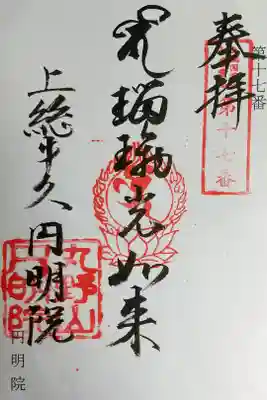 第十七番
奉拝
第十七番
瑠璃光如来
上総平久
円明院
円明院